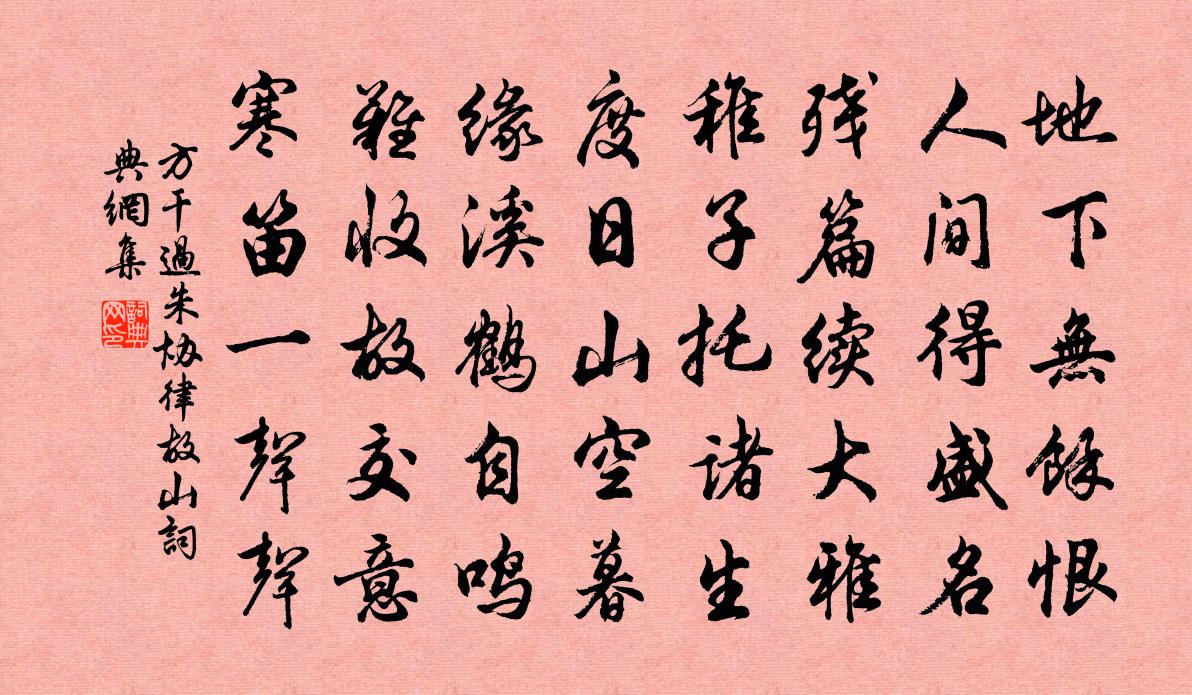 地下無餘恨
人间得盛名
残篇续大雅
稚子托诸生
度日山空暮
缘溪鹤自鸣
難收故交意
寒笛一聲聲
方干過朱协律故山詞
典網集
詞典
网印